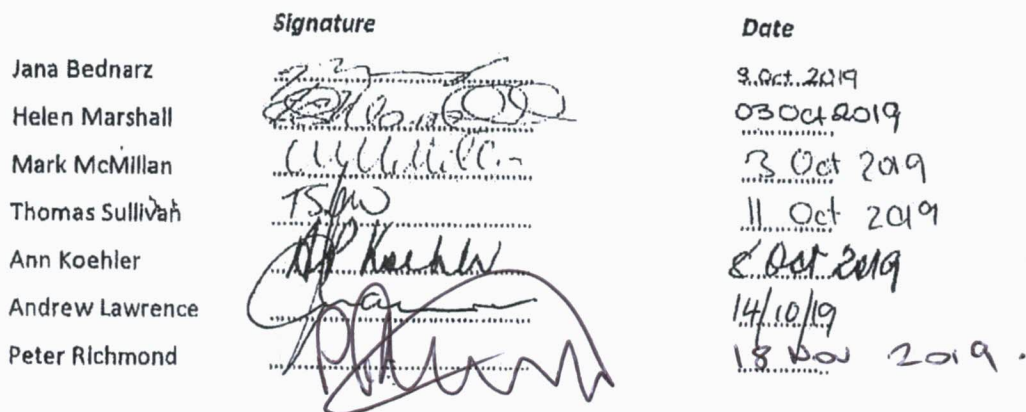 Signature Date
Jana Bednarz 9 Oct 2019
Helen Marshall 03 Oct 2019
Mark McMillan 3 Oct 2019
Thomas Sullivan 11 Oct 2019
Ann Koehler AP Koehler 8 Oct 2019
Andrew Lawrence 14/10/19
Peter Richmond 18 Nov 2019.